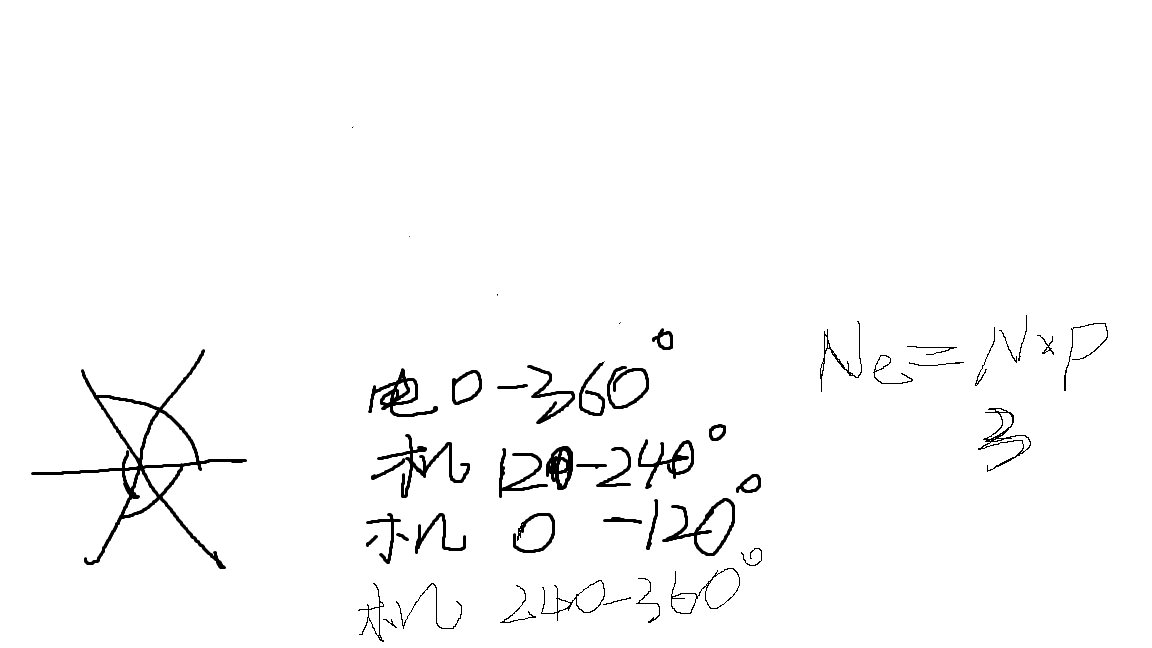 电0-360°
机120-240°
机0-120°
机240-360°
Ne=N×P
3